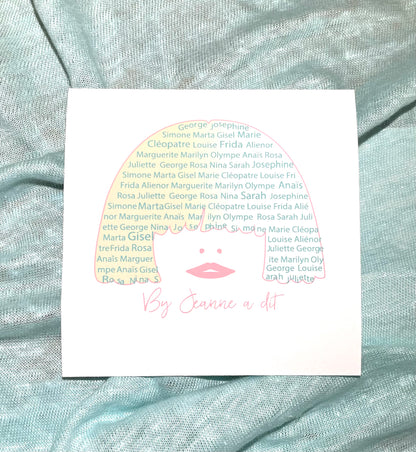 George Josephine
Simone Marta Gisel Marie
Cléopatre Louise Frida Alienor
Marguerite Marilyn Olympe Anaïs Rosa
Juliette George Rosa Nina Sarah Josephine
Simone Marta Gisel Marie Cléopatre Louise Fri
Frida Alienor Marguerite Marilyn Olympe Anaïs
Rosa Juliette George Rosa Nina Sarah Josephine
Simone Marta Gisel Marie Cléopatre Louise Frida Alié
nor Marguerite Anaïs Marilyn Olympe Rosa Sarah Juli
George Rosa Nina Josephine Simone Marie Cléopa
Marta Gisel Louise Aliènor
treFrida Rosa Juliette George
Anaïs Marguer ite Marilyn Oly
mpe Anaïs Gisel George Louise
Rosa Nina S arah Juliette
By Jeanne a dit